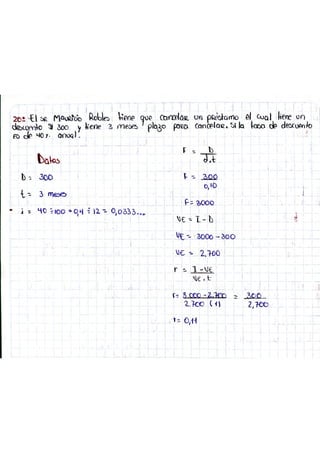 20: El sr Mauricio Robles tiene que cancelar un préstamo el cual tiene un
descuento $ 300 y tiene 3 meses plazo para cancelar. Si la tasa de descuento
es de 40% anual.
Datos
b = 300
t = 3 meses
i = 40 ÷ 100 = 0,4 ÷ 12 = 0,0333...
F = b
d.t
F = 300
0,10
F = 3000
VE = I - b
VE = 3000 - 300
VE = 2,700
r = I - VE
VE . t
r = 3.000 - 2.700 = 300
2.700 (1) 2,700
r = 0,11